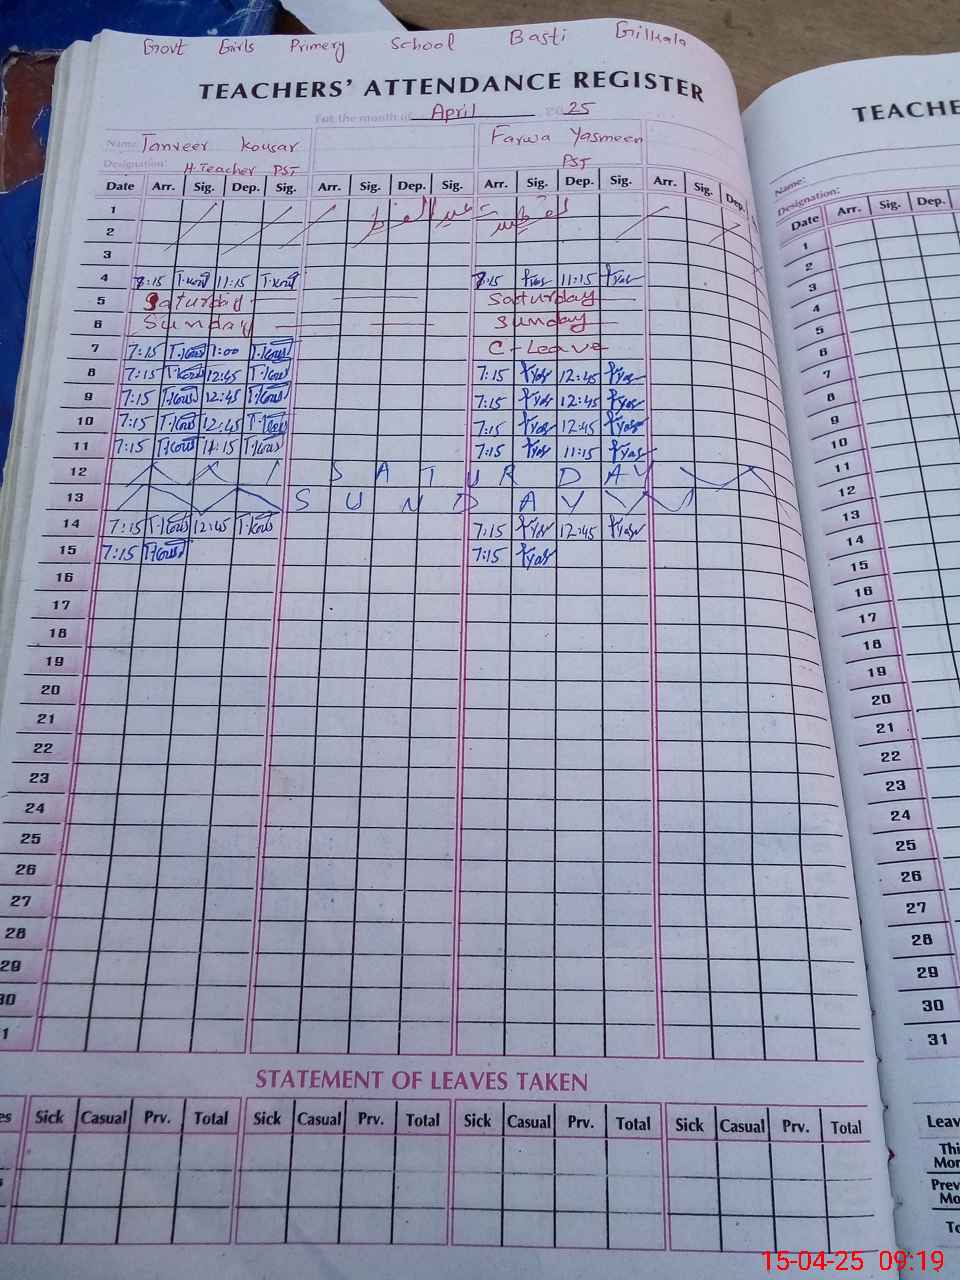 Govt Girls Primery School Basti Gilkala
TEACHERS' ATTENDANCE REGISTER
For the month of April 25
Name: Tanveer Kousar Farwa Yasmeen
Designation: H.Teacher PST PST
Date Arr. Sig. Dep. Sig. Arr. Sig. Dep. Sig. Arr. Sig. Dep. Sig. Arr. Sig. Dep.
1 عید الفطر
2
3
4 7:15 T.Kous 11:15 T.Kous 7:15 fyas 11:15 fyas
5 Saturday Saturday
6 Sunday Sunday
7 7:15 T.Kous 1:00 T.Kous C-Leave
8 7:15 T.Kous 12:45 T.Kous 7:15 fyas 12:45 fyas
9 7:15 T.Kous 12:45 T.Kous 7:15 fyas 12:45 fyas
10 7:15 T.Kous 12:45 T.Kous 7:15 fyas 12:45 fyas
11 7:15 T.Kous 11:15 T.Kous 7:15 fyas 11:15 fyas
12 SATURDAY
13 SUNDAY
14 7:15 T.Kous 12:45 T.Kous 7:15 fyas 12:45 fyas
15 7:15 T.Kous 7:15 fyas
16
17
18
19
20
21
22
23
24
25
26
27
28
29
30
1
STATEMENT OF LEAVES TAKEN
es Sick Casual Prv. Total Sick Casual Prv. Total Sick Casual Prv. Total Sick Casual Prv. Total
TEACHE
Name:
Designation:
Date Arr. Sig. Dep.
1
2
3
4
5
6
7
8
9
10
11
12
13
14
15
16
17
18
19
20
21
22
23
24
25
26
27
28
29
30
31
Leav
Thi
Mor
Prev
Mor
To
15-04-25 09:19